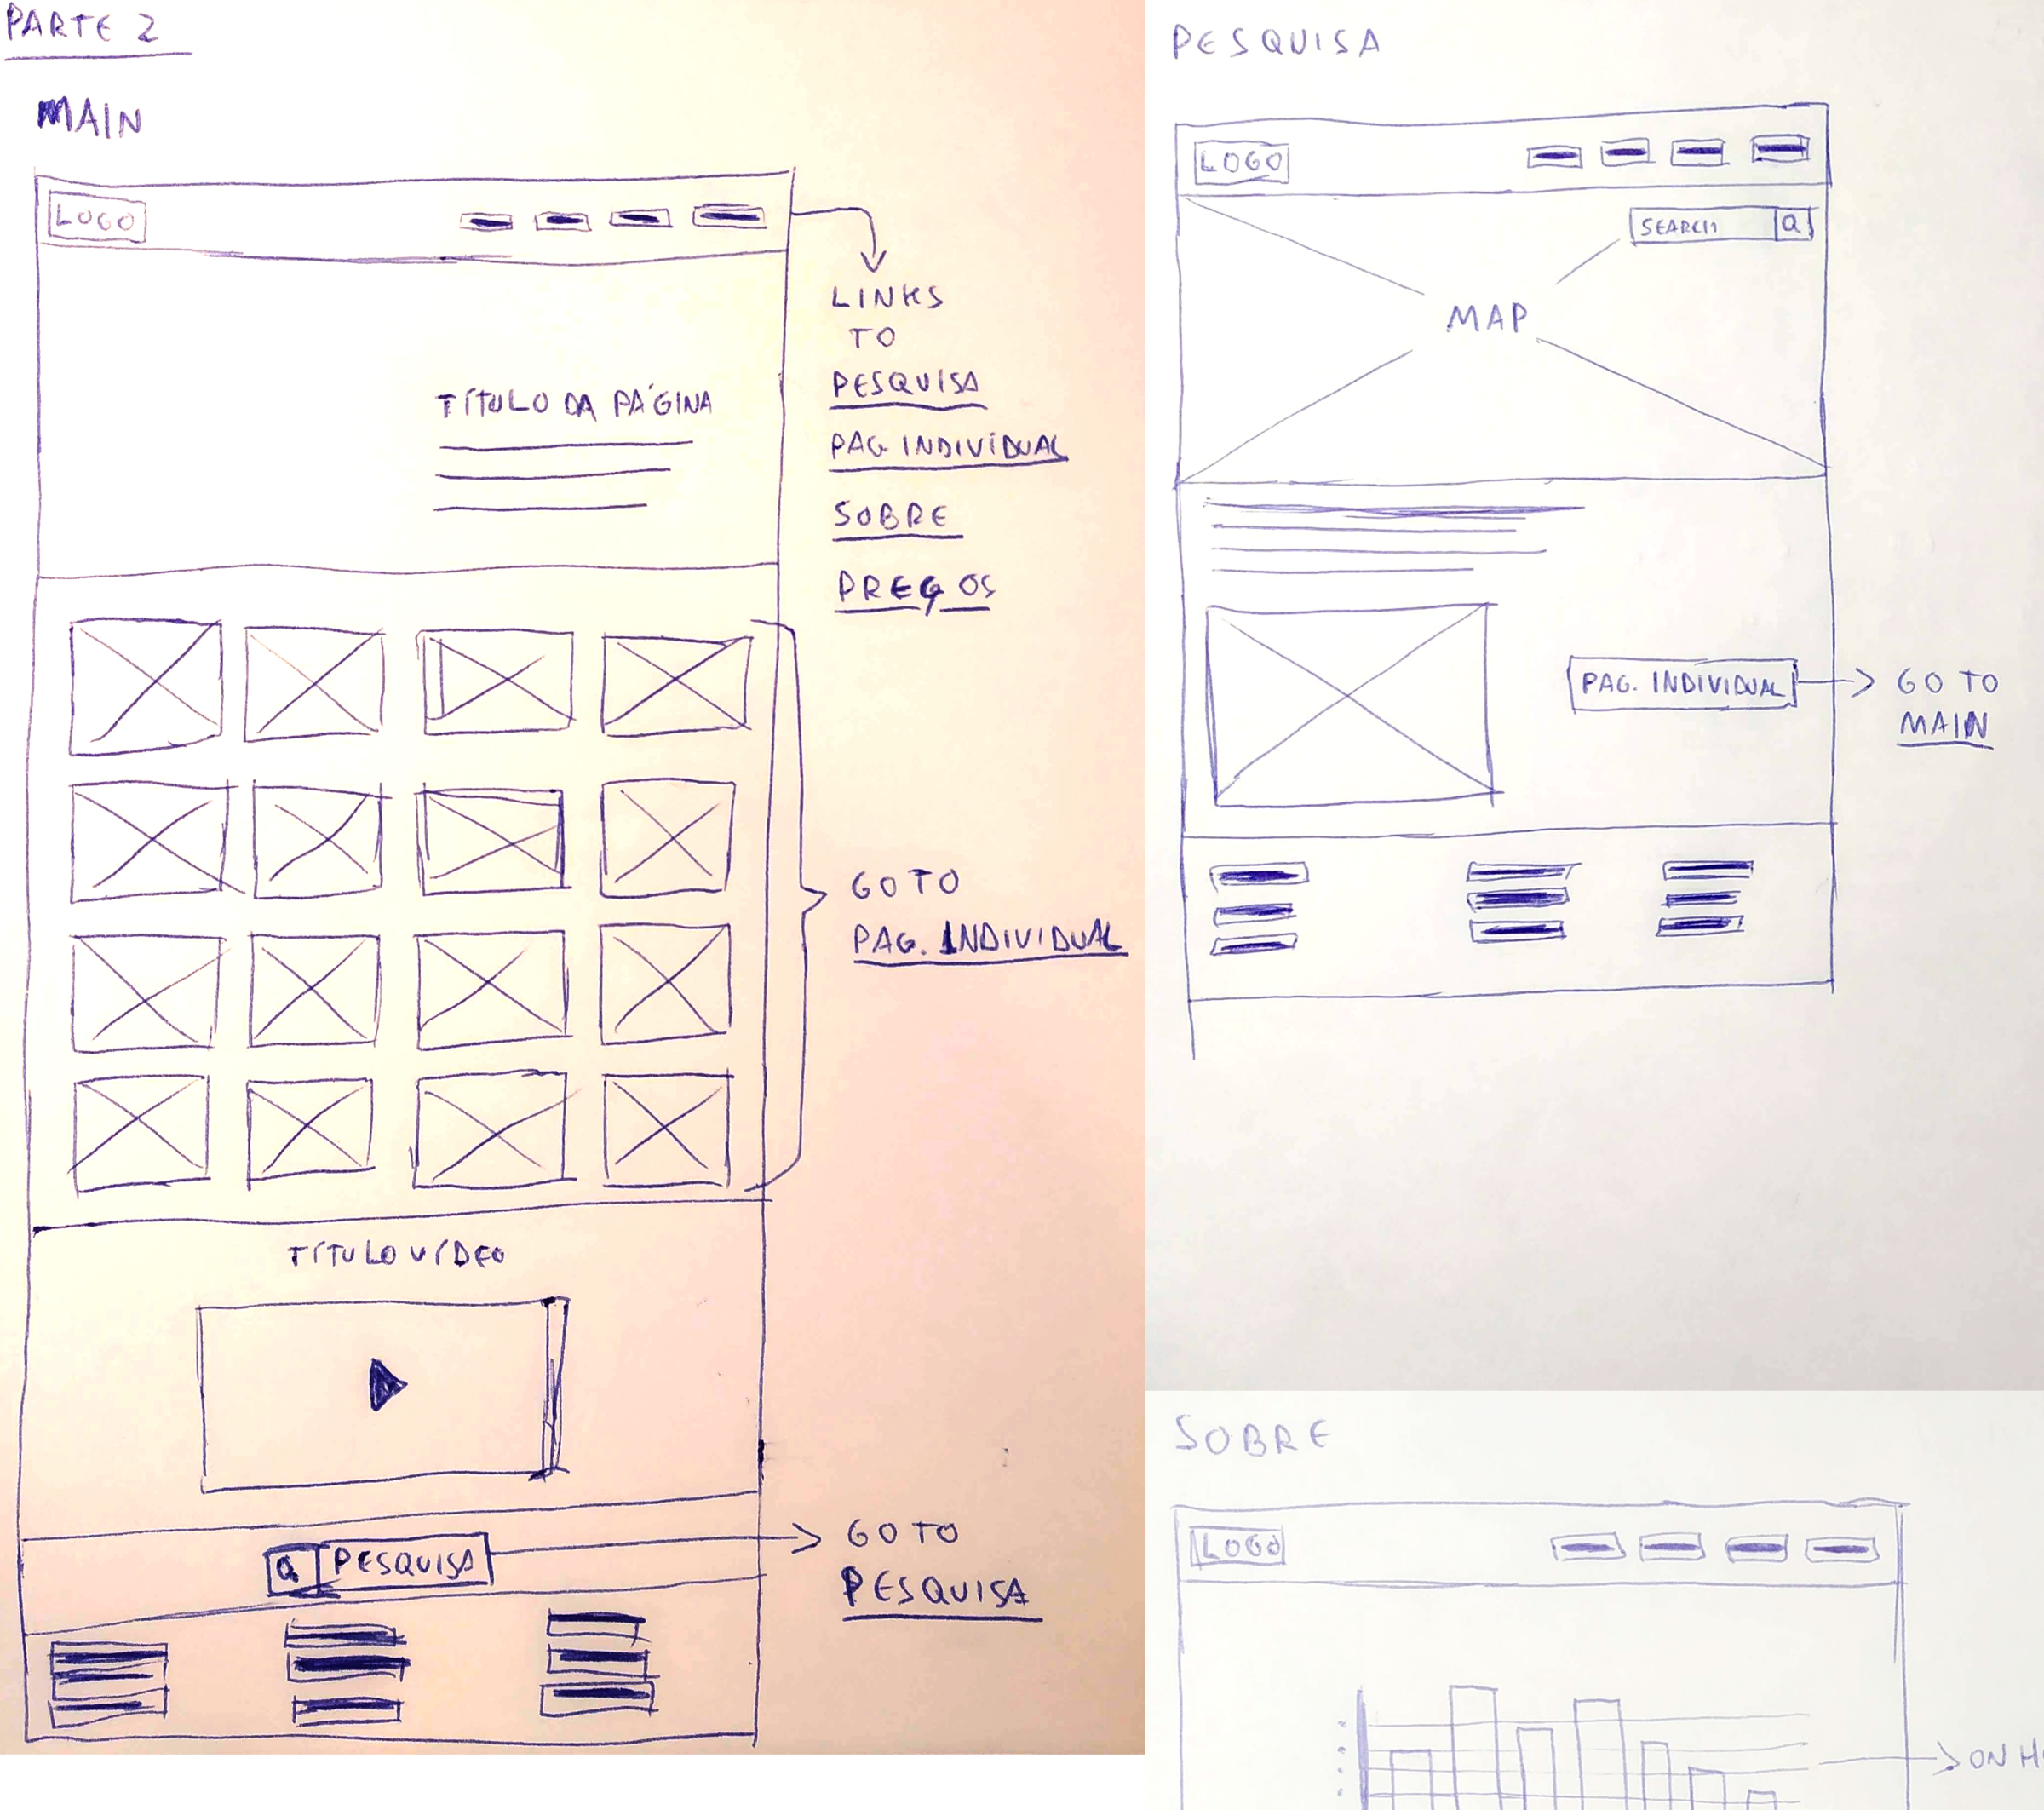 PARTE 2
MAIN
LOGO
LINKS
TO
PESQUISA
PAG. INDIVIDUAL
SOBRE
PREÇOS
TÍTULO DA PÁGINA
GO TO
PAG. INDIVIDUAL
TÍTULO VÍDEO
Q PESQUISA
GO TO
PESQUISA
PESQUISA
LOGO
SEARCH Q
MAP
PAG. INDIVIDUAL
GO TO
MAIN
SOBRE
LOGO
ON